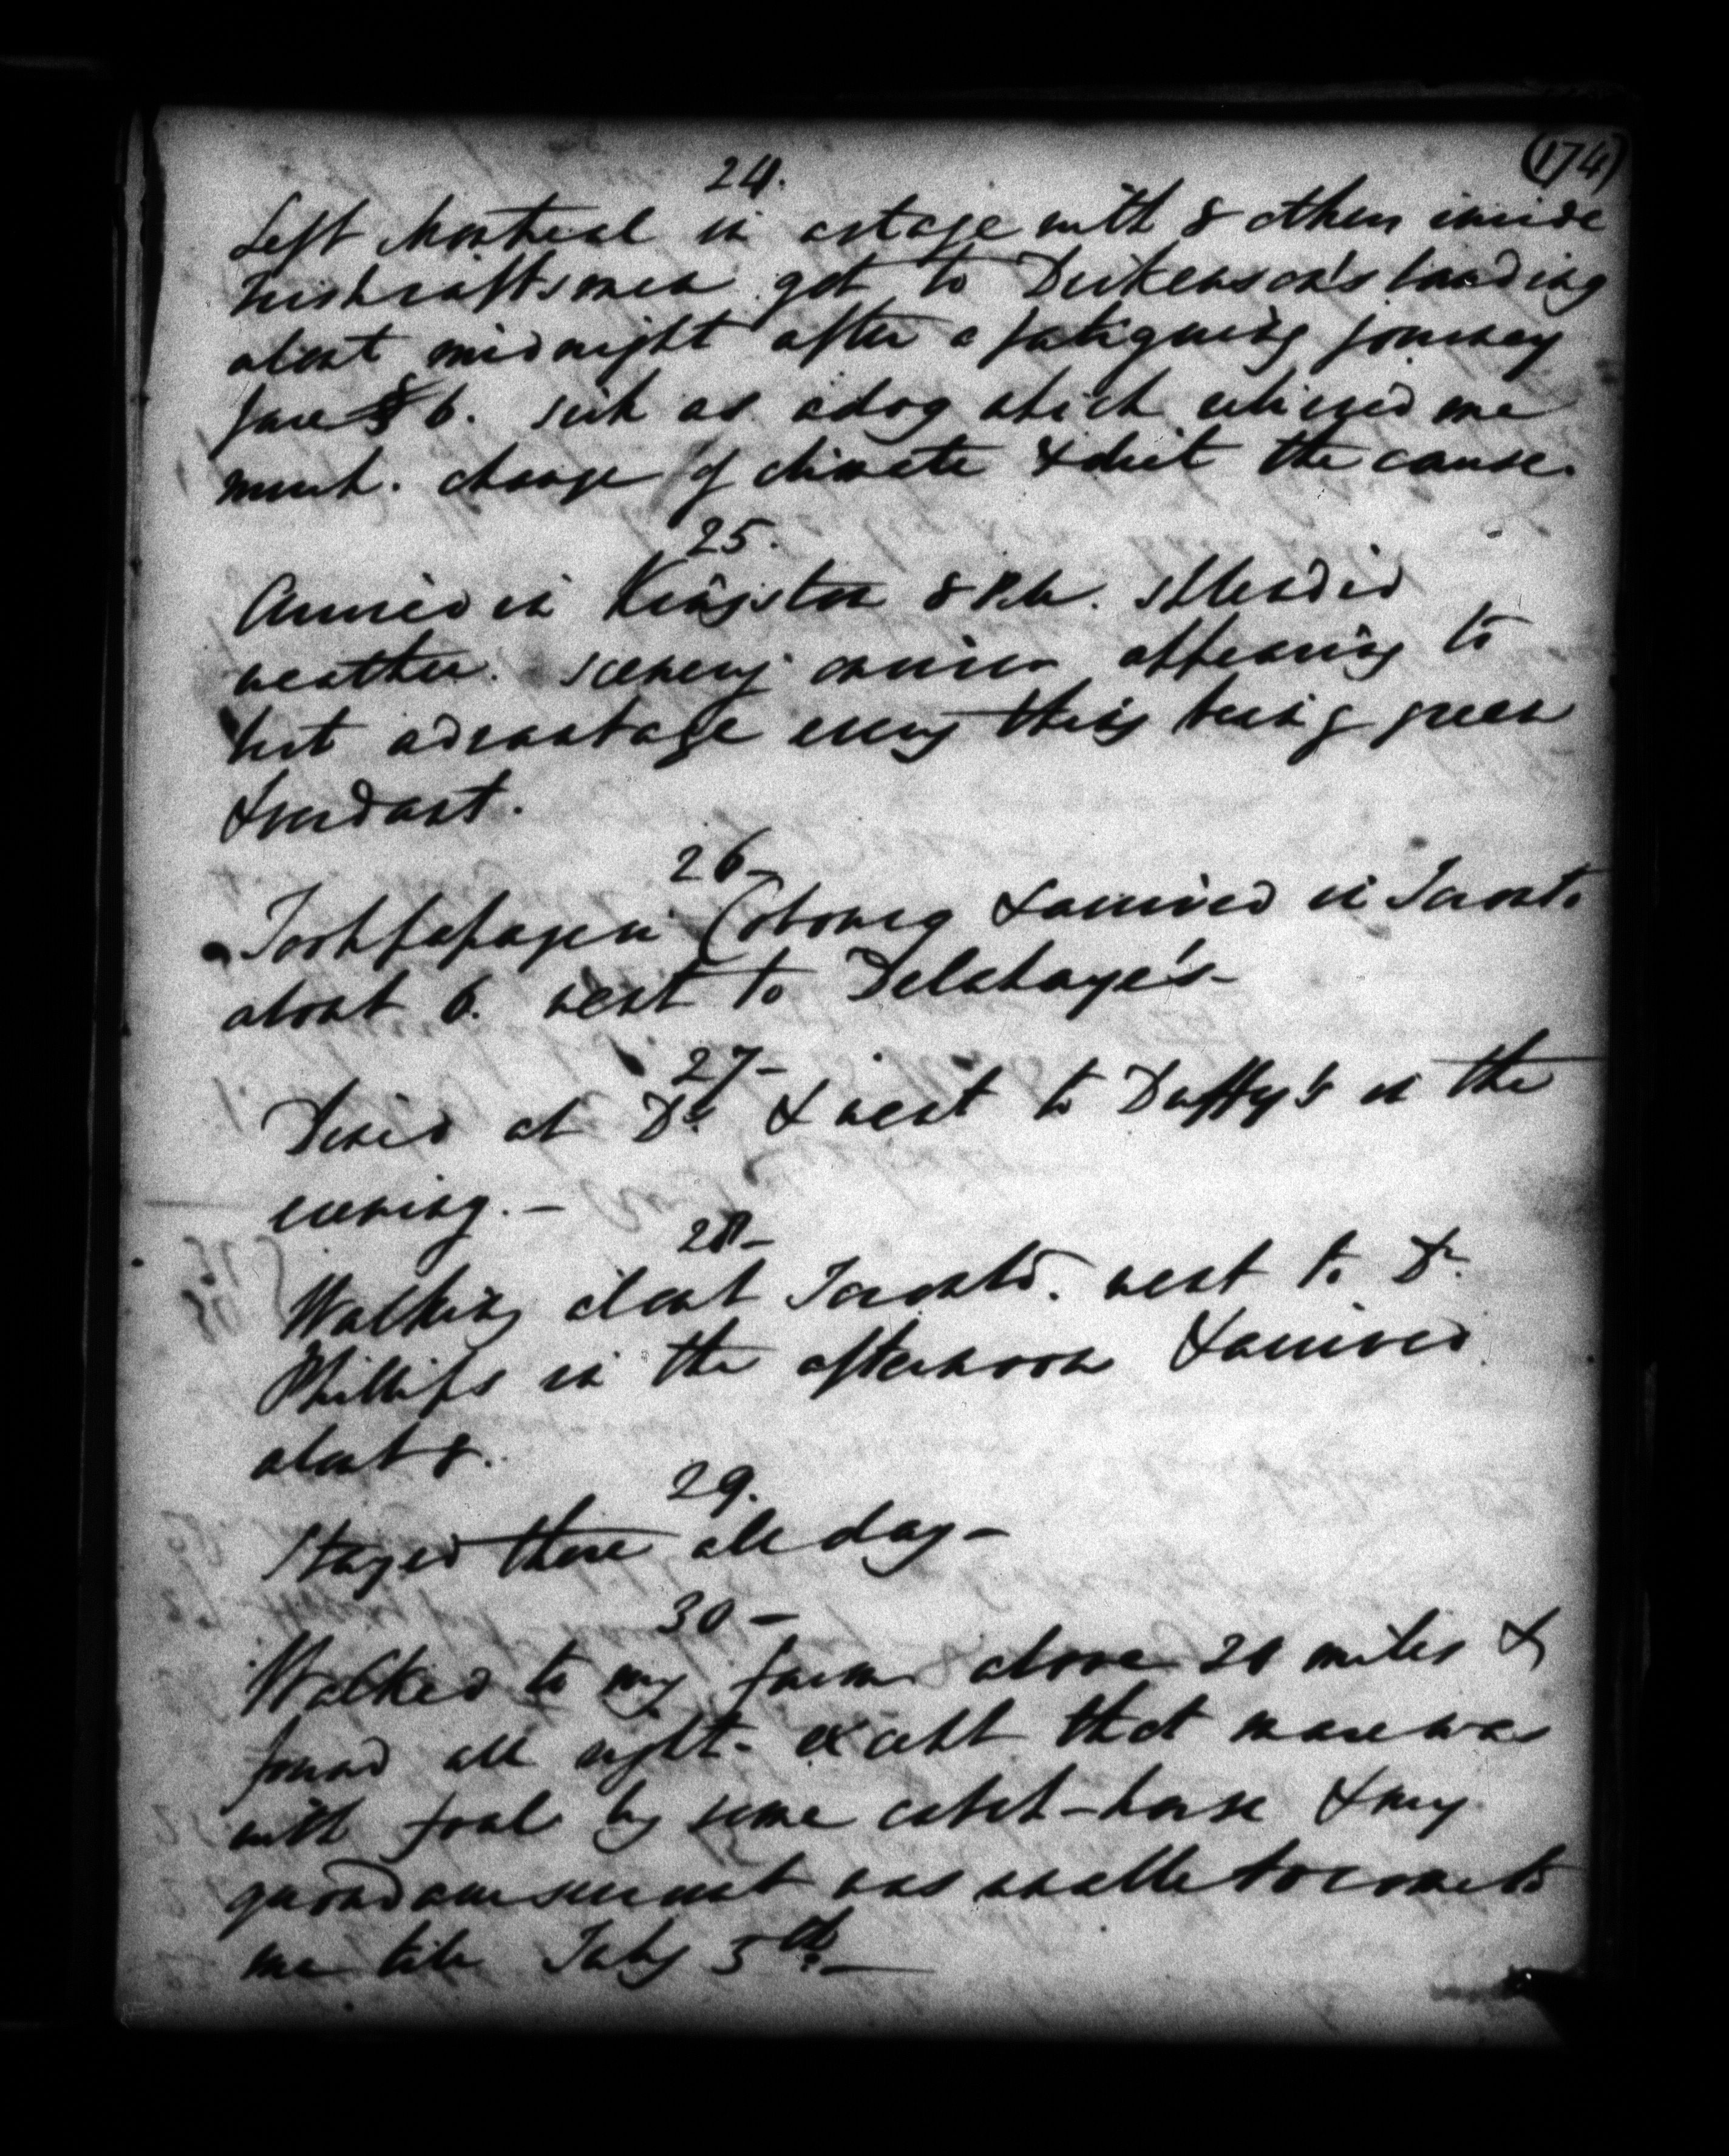 (174)
24.
Left Montreal in a stage with 8 others inside
Irish raftsmen got to Dickenson's landing
about midnight after a fatiguing journey
fare $ 6. sick as a dog which relieved me
much. change of climate & diet the cause.
25.
Arrived in Kingston 8 P.M. splendid
weather. scenery appearing to
best advantage every thing being green
& verdant.
26-
Took passage in Cobourg & arrived in Toronto
about 6. went to Delahaye's-
27-
Dined at Do. & went to Duffy's in the
evening.-
28-
Walking about Toronto. went to Dr.
Phillips in the afternoon & arrived
about 8.
29.
Stayed there all day-
30-
Walked to my farm above 20 miles &
found all right- except that mare was
with foal by some catch-horse & my
quondam servant was unable to come to
me till July 5th.-